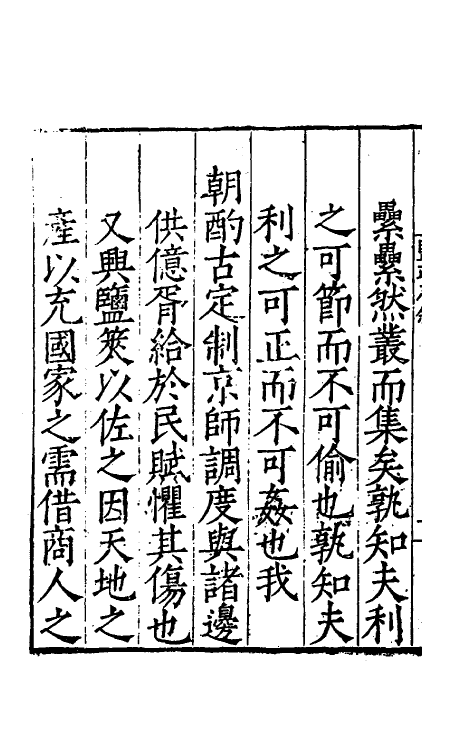 纍纍然叢而集矣孰知夫利
之可節而不可偷也孰知夫
利之可正而不可姦也我
朝酌古定制京師調度與諸邊
供億胥給於民賦懼其傷也
又興鹽筴以佐之因天地之
產以充國家之需借商人之